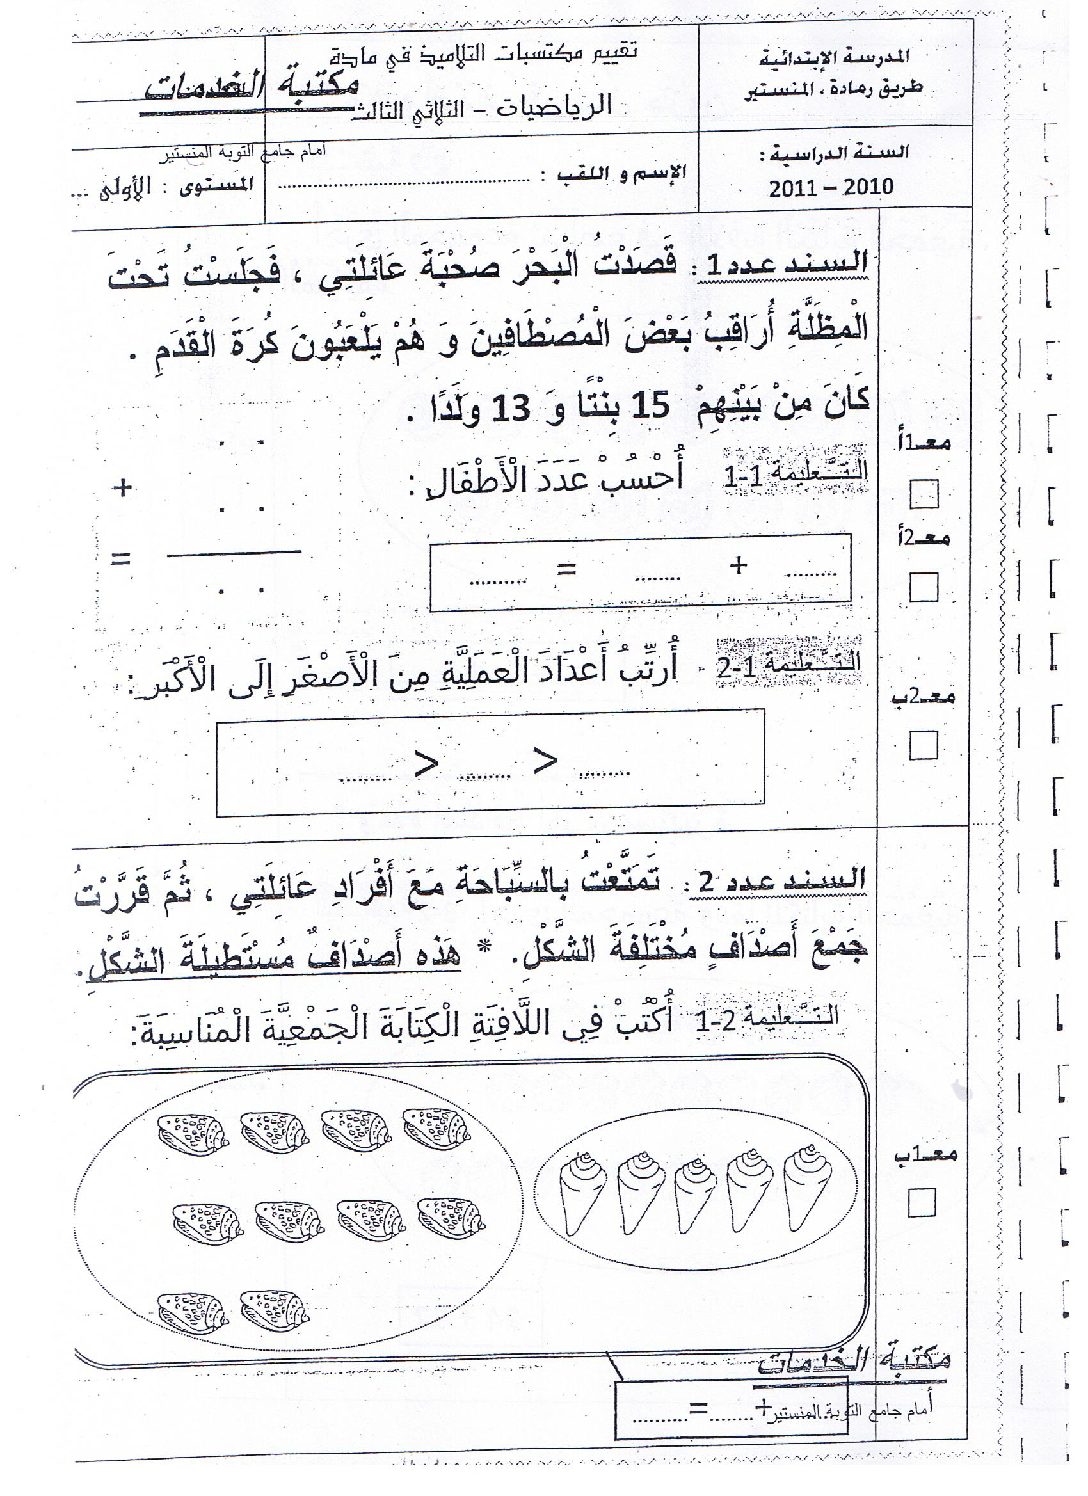 المدرسة الإبتدائية
طريق رمادة ، المنستير
تقييم مكتسبات التلاميذ في مادة
الرياضيات – الثلاثي الثالث
مكتبة الخدمات
أمام جامع التوبة المنستير
السنة الدراسية :
2010 – 2011
الإسم و اللقب : ..............................
المستوى : الأولى ...
السند عدد 1 : قَصَدْتُ الْبَحْرَ صُحْبَةَ عَائِلَتِي ، فَجَلَسْتُ تَحْتَ
الْمِظَلَّةِ أُرَاقِبُ بَعْضَ الْمُصْطَافِينَ وَ هُمْ يَلْعَبُونَ كُرَةَ الْقَدَمِ .
كَانَ مِنْ بَيْنِهِمْ 15 بِنْتًا وَ 13 ولَدًا .
معـ1أ
التعليمة 1-1 أُحْسُبْ عَدَدَ الْأَطْفَالِ :
معـ2أ
......... + ........ = ..........
. .
+
. .
=
. .
التعليمة 1-2 أُرَتِّبُ أَعْدَادَ الْعَمَلِيَّةِ مِنَ الْأَصْغَرِ إلَى الْأَكْبَرِ :
معـ2ب
......... > ......... > .........
السند عدد 2 : تَمَتَّعْتُ بالسِّبَاحَةِ مَعَ أَفْرَادِ عَائِلَتِي ، ثُمَّ قَرَّرْتُ
جَمْعَ أَصْدَافٍ مُخْتَلِفَةَ الشَّكْلِ. * هَذه أَصْدَافٌ مُسْتَطِيلَةَ الشَّكْلِ.
التعليمة 2-1 أُكْتُبْ فِي اللَّافِتَةِ الْكِتَابَةَ الْجَمْعِيَّةَ الْمُنَاسِبَةَ:
معـ1ب
مكتبة الخدمات
أمام جامع التوبة المنستير
.........+........=.........